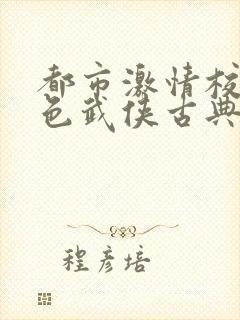 都市激情校
色武侠古典
程彦培